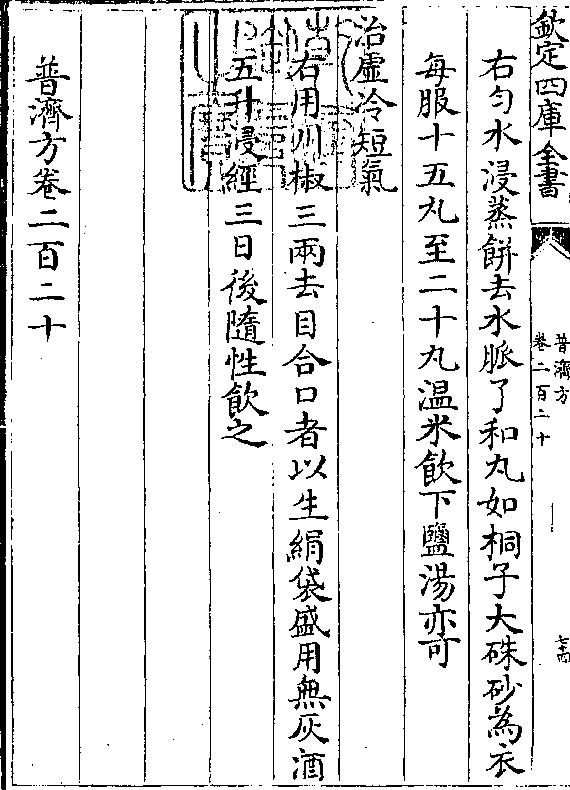 欽定四庫全書
普濟方
卷二百二十
右勻水浸蒸餅去水脈了和丸如桐子大硃砂為衣
每服十五丸至二十丸温米飲下鹽湯亦可
治虛冷短氣
右用川椒三兩去目合口者以生絹袋盛用無灰酒
五升浸經三日後隨性飲之
普濟方卷二百二十